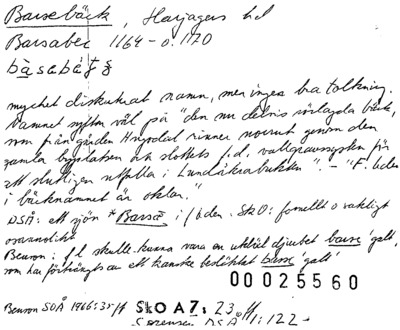 Barsebäck, Harjagers hd
Barsabec 1164 - o. 1170
bàsabák
mycket diskuterat namn, men ingen bra tolkning.
Namnet syftar väl på "den nu delvis rörlagda bäck,
som från gården rinner norrut genom den
gamla byplatsen och slottets f.d. vallgravssystem för
att slutligen utfalla i Lundåkrabukten". - "F. leden
i bäcknamnet är oklar."
DSÅ: ett sjön *Barsā i f. leden. SkO: formellt o sakligt
osannolikt
Benson: f l skulle kunna vara en utbildt djurbet barse 'galt',
som har förträngts av ett danske besläktat basse 'galt'
00025560
Benson SOÅ 1966:35 ff SkOA7: 23 ff
Sørensen DSÅ 1:122-